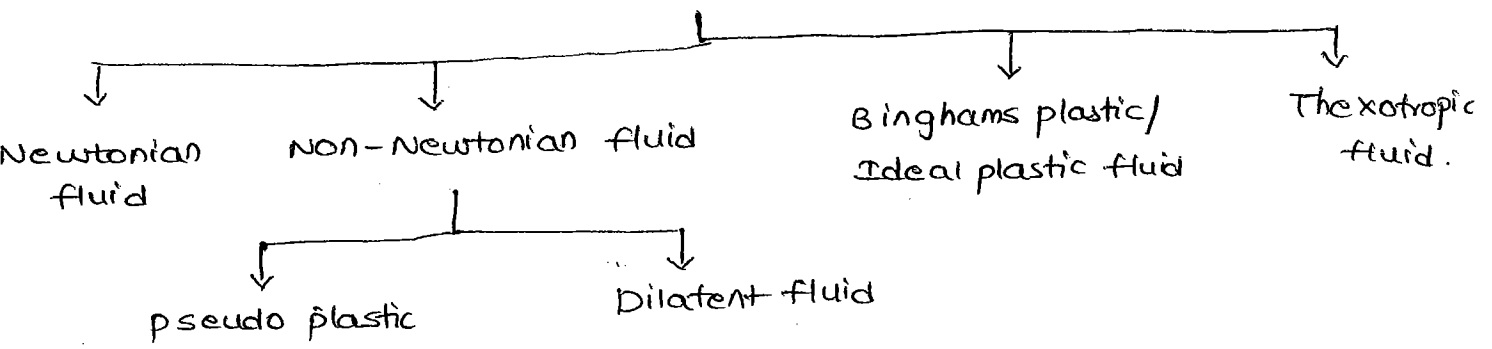 Newtonian
fluid
Non-Newtonian fluid
Binghams plastic/
Ideal plastic fluid
Thexotropic
fluid.
pseudo plastic
Dilatent fluid